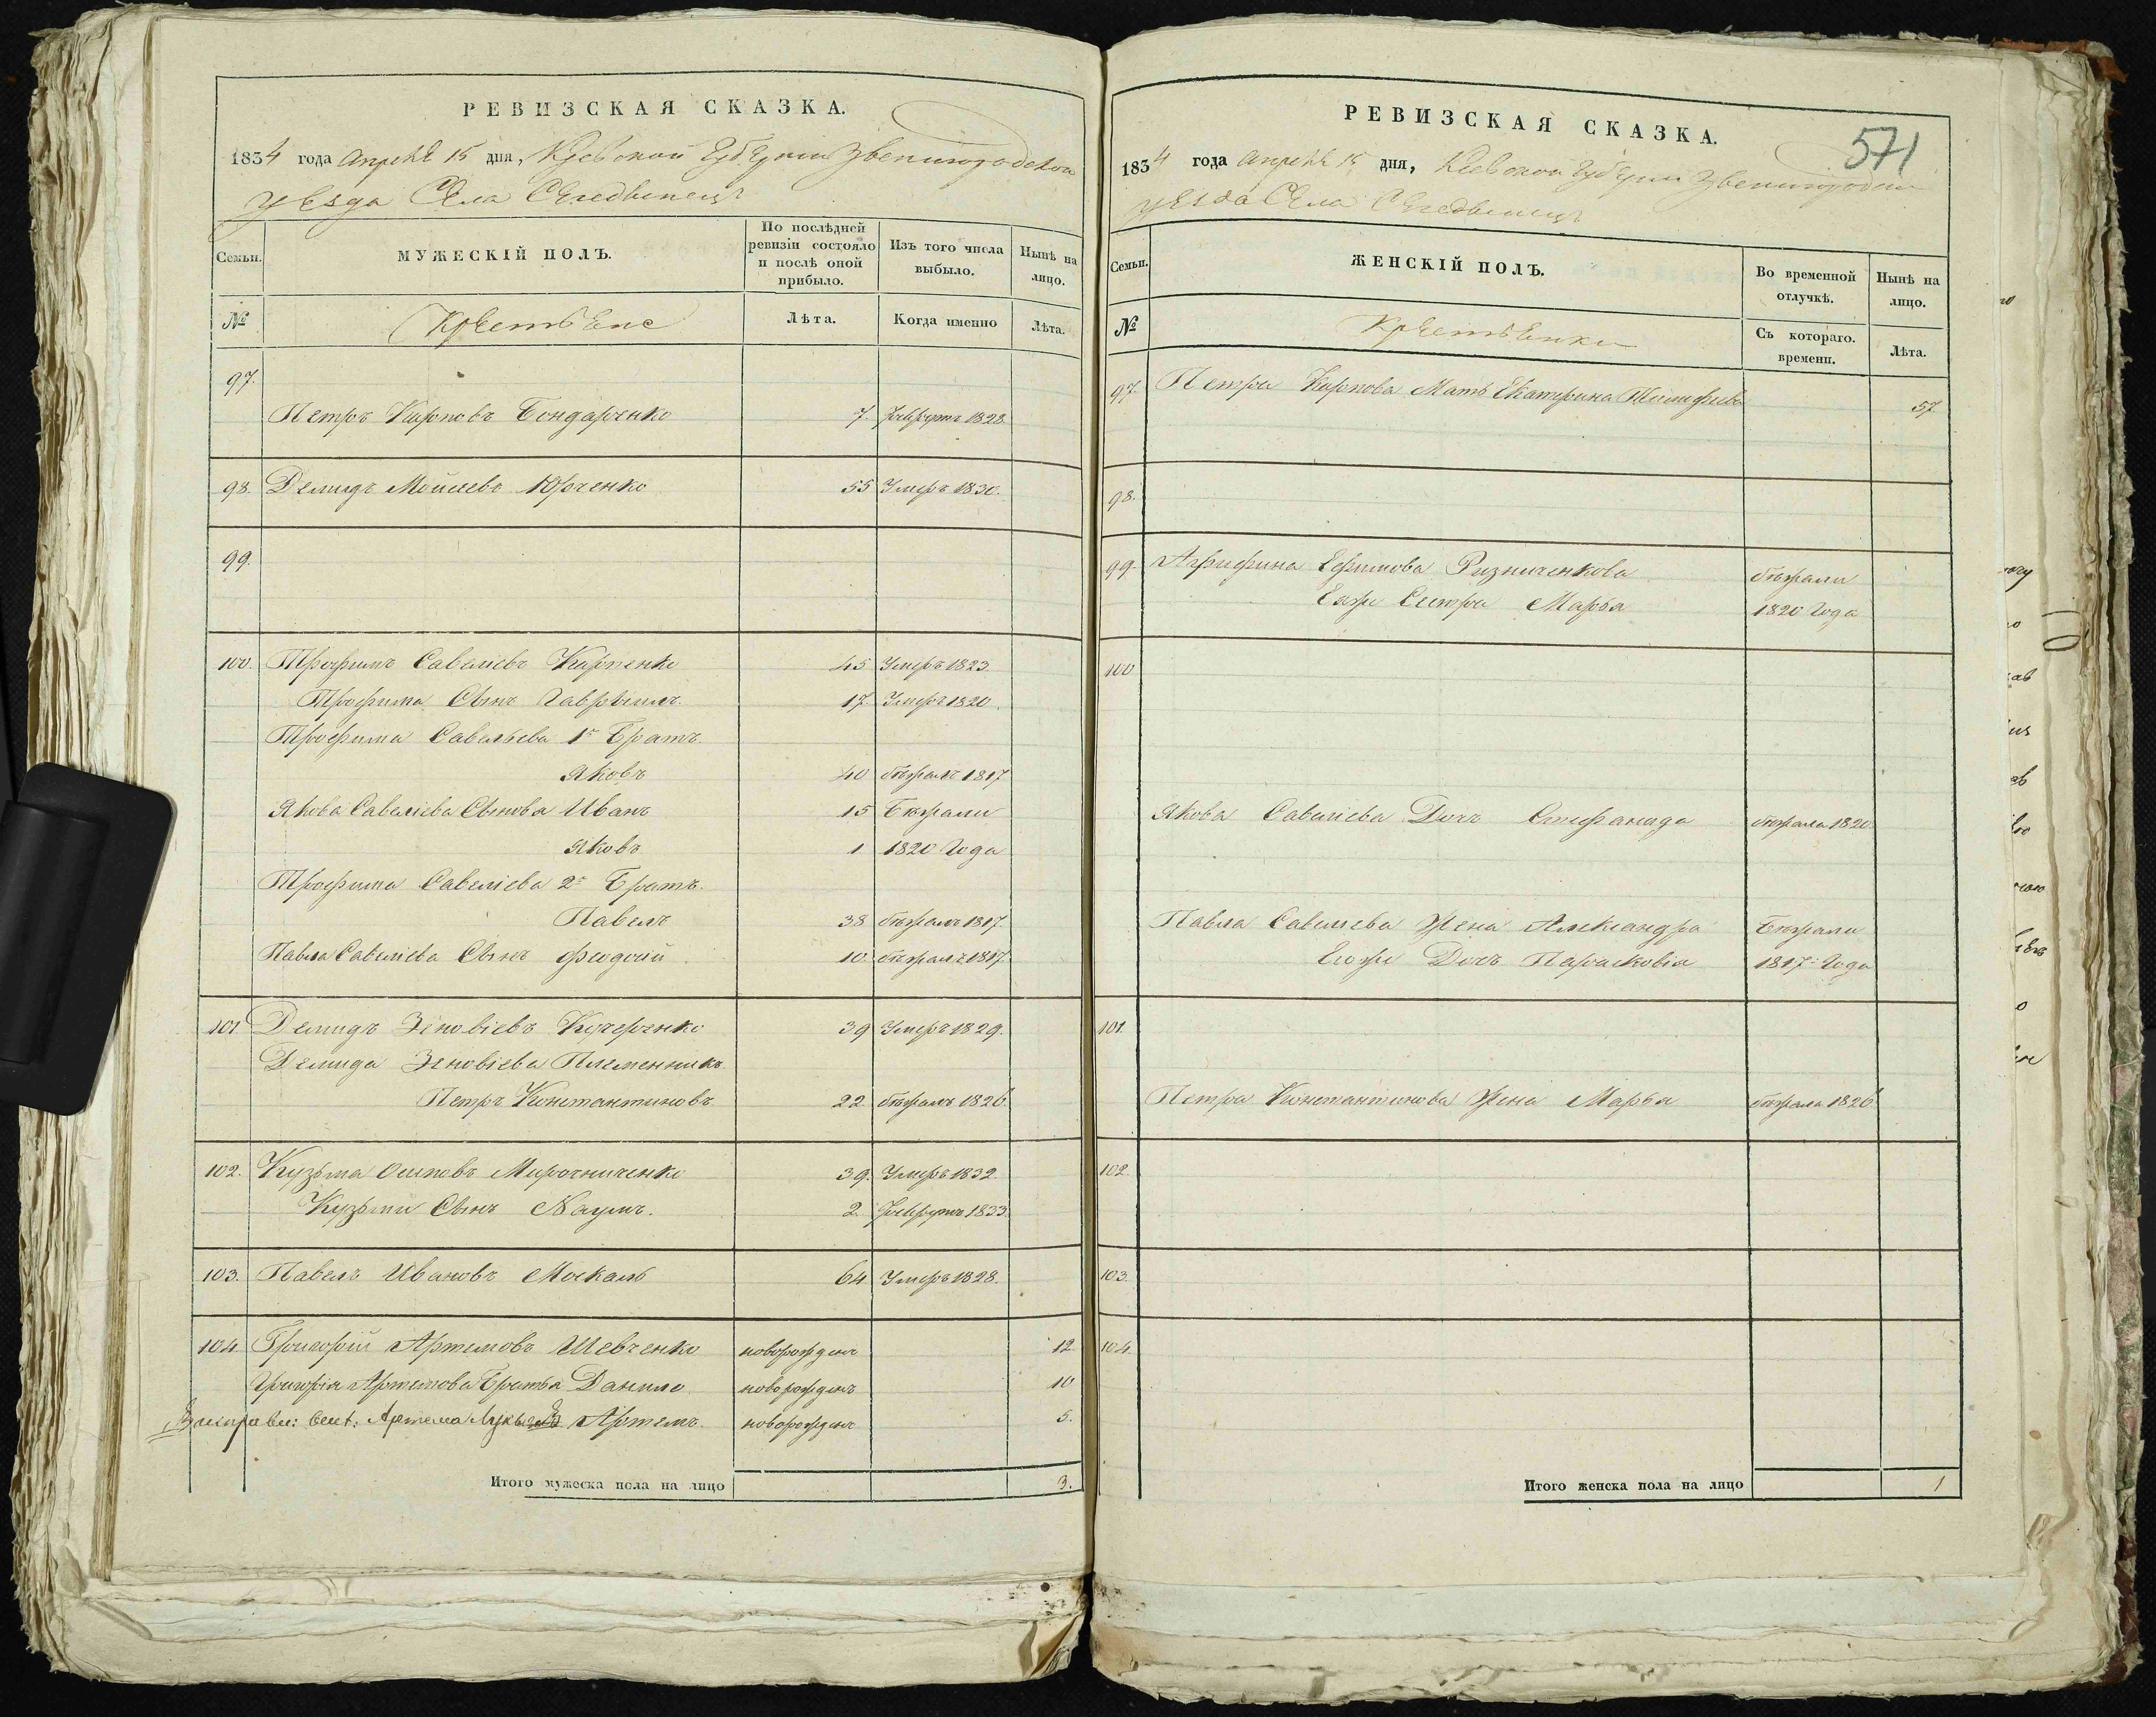 РЕВИЗСКАЯ СКАЗКА.
1834 года Апреля 15 дня, Кіевской Губерніи Звенигородской
уезда Села
Семьи.
МУЖЕСКІЙ ПОЛЪ.
По послѣдней ревизіи состояло и послѣ оной прибыло.
Изъ того числа выбыло.
Нынѣ на лицо.
№
Лѣта.
Когда именно
Лѣта.
97.
Петръ Карповъ Бондаренко 7. 1828
98. Демидъ Моисеевъ Юрченко 55 Умеръ 1830.
99.
100. Трофимъ Савелієвъ Карпенко 45 Умеръ 1823.
Трофима Сынъ Гаврыилъ. 17. Умеръ 1820.
Трофима Савельева 1й Братъ.
Яковъ 40 бѣжалъ 1817
Якова Савеліева Сыновя Иванъ 15 Бѣжали
Яковъ 1 1820 Года
Трофима Савеліева 2й Братъ.
Павелъ 38 бѣжалъ 1817.
Павла Савеліева Сынъ Феодосій 10. бѣжалъ 1817.
101 Демидъ Зѣновіевъ Кучеренко 39 Умеръ 1829.
Демида Зеновіева Племенникъ
Петръ Константиновъ 22 бѣжалъ 1826
102. Кузьма Осиповъ Мирочниченко 39. Умеръ 1832.
Кузьми Сынъ Наумъ. 2. 1833.
103. Павелъ Ивановъ Москаль 64 Умеръ 1828.
104 Григорій Артемовъ Шевченко новорожденъ 12
Григорія Артемова Братья Данило новорожденъ 10
Артема Артемъ. новорожденъ 5.
Итого мужеска пола на лицо 3.
571
РЕВИЗСКАЯ СКАЗКА.
1834 года Апреля 15 дня, Кіевской Губерніи Звенигородской
уезда Села
Семьи.
ЖЕНСКІЙ ПОЛЪ.
Во временной отлучкѣ.
Нынѣ на лицо.
№
Съ котораго. времени.
Лѣта.
97. Петра Карпова Мать Екатерина 57
98.
99. Агрифина Ефимова Ризниченкова бѣжали
Еяже Сестра Марья 1820 Года
100
Якова Савеліева Дочь Стефанида бѣжала 1820
Павла Савеліева Жена Александра Бѣжали
Егоже Дочь Парасковія 1817 Года
101.
Петра Константинова Жена Марья бѣжала 1826
102.
103.
104.
Итого женска пола на лицо 1